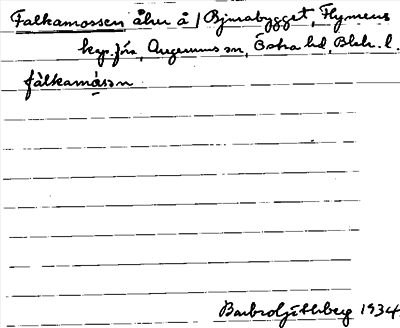 Falkamossen åker å / Bjurabygget, Flymens
kap.förs., Augerums sn, Östra hd, Blek. l.
fàlkamåsən
Barbro Ljüthberg 1934